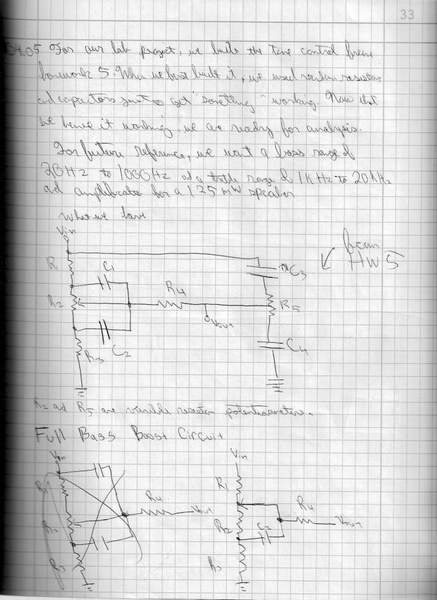 33
04.05 For our lab project, we built the tone control from
homework 5. When we first built it, we used random resistors
and capacitors just to get "something" working. Now that
we have it working we are ready for analysis.
For future reference, we want a bass range of
20Hz to 1000Hz and a treble range of 1kHz to 20kHz
and amplification for a 125 mW speaker
What we have
Vin
from
HW5
R1
C1
C3
R2
R4
R5
Vout
C2
R3
C4
R2 and R5 are variable resistor potentiometers.
Full Bass Boost Circuit
Vin
Vin
R1
R1
R4
Vout
R4
R2
R2
C2
Vout
R3
R3